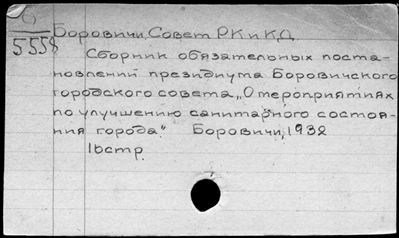 О
5558
Боровичи, Совет РК и КД
Сборник обязательных поста-
новлений президиума Боровичского
городского совета „О мероприятиях
по улучшению санитарного состоя-
ния города." Боровичи, 1932
16стр.